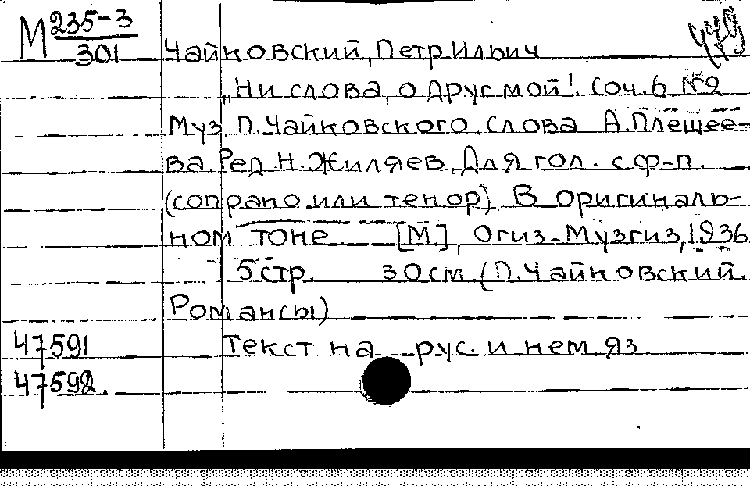 М 235-3
301
Чайковский, Петр Ильич
"Ни слова, о друг мой!" Соч. 6 №2
Муз. П. Чайковского, слова А. Плещее-
ва. Ред. Н. Жиляев. Для гол. с ф-п.
(сопрано или тенор). В оригиналь-
ном тоне. [М], Огиз-Музгиз, 1936
5 стр. 30 см (П. Чайковский.
Романсы)
47591 Текст на рус. и нем. яз
47592.